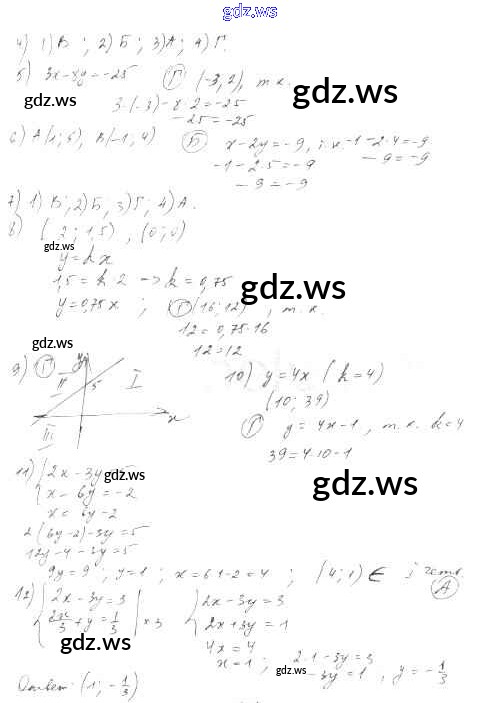 gdz.ws
4) 1) В ; 2) Б ; 3) А ; 4) Г.
gdz.ws
5) 3x-8y=-25 Г (-3,2), т.к.
3·(-3)-8·2=-25
gdz.ws
-25=-25
6) A(1;5), B(-1;4) Б x-2y=-9, т.к. -1-2·4=-9
-1-2·5=-9 -9=-9
-9=-9
7) 1) В; 2) Б, 3) Г; 4) А.
8) (2; 1,5), (0;0)
gdz.ws
y=kx
1,5=k·2 -> k=0,75
gdz.ws
y=0,75x ; Г (16;12), т.к.
12=0,75·16
12=12
gdz.ws
9) Г y
II 5 I
x
III
10) y=4x (k=4)
(10; 39)
Г y=4x-1, т.к. k=4
39=4·10-1
11) 2x-3y=5
gdz.ws
x-6y=-2
x=6y-2
gdz.ws
2(6y-2)-3y=5
12y-4-3y=5
9y=9 ; y=1 ; x=6·1-2=4 ; (4;1) ∈ I четв.
А
12) 2x-3y=3 2x-3y=3
2x/3+y=1/3 | ×3 2x+3y=1
gdz.ws
4x=4
x=1 ; 2·1-3y=3
gdz.ws
-3y=1, y=-1/3
Ответ: (1; -1/3)